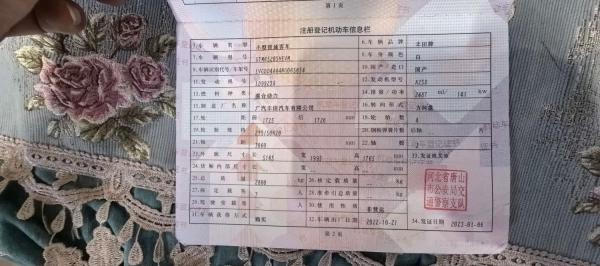 第 1 页
注册登记机动车信息栏
5.车 辆 类 型 小型普通客车 6.车 辆 品 牌 丰田牌
7.车 辆 型 号 8.车 身 颜 色 白
9.车辆识别代号/车架号 10.国 产/进 口 国产
11.发 动 机 号 12.发动机型号 A25D
13.燃 料 种 类 混合动力 14.排 量/功 率 2487 ml/ kw
15.制 造 厂 名 称 广汽丰田汽车有限公司 16.转 向 形 式 方向盘
17.轮 距 前 1725 后 1726 mm 18.轮 胎 数 4
19.轮 胎 规 格 235/50R20 20.钢板弹簧片数 后轴 片
21.轴 距 3060 mm 22.轴 数 2
23.外 廓 尺 寸 长 5165 宽 1993 高 1765 mm 33.发证机关章
24.货厢内部尺寸 长 宽 高 mm
25.总 质 量 2800 kg 26.核 定 载 质 量 kg
27.核 定 载 客 人 28.准牵引总质量 kg
29.驾 驶 室 载 客 人 30.使 用 性 质 非营运
31.车辆获得方式 购买 32.车辆出厂日期 2022-10-21 34.发证日期 2023-01-06
河北省唐山
市公安局交
通警察支队
第 2 页